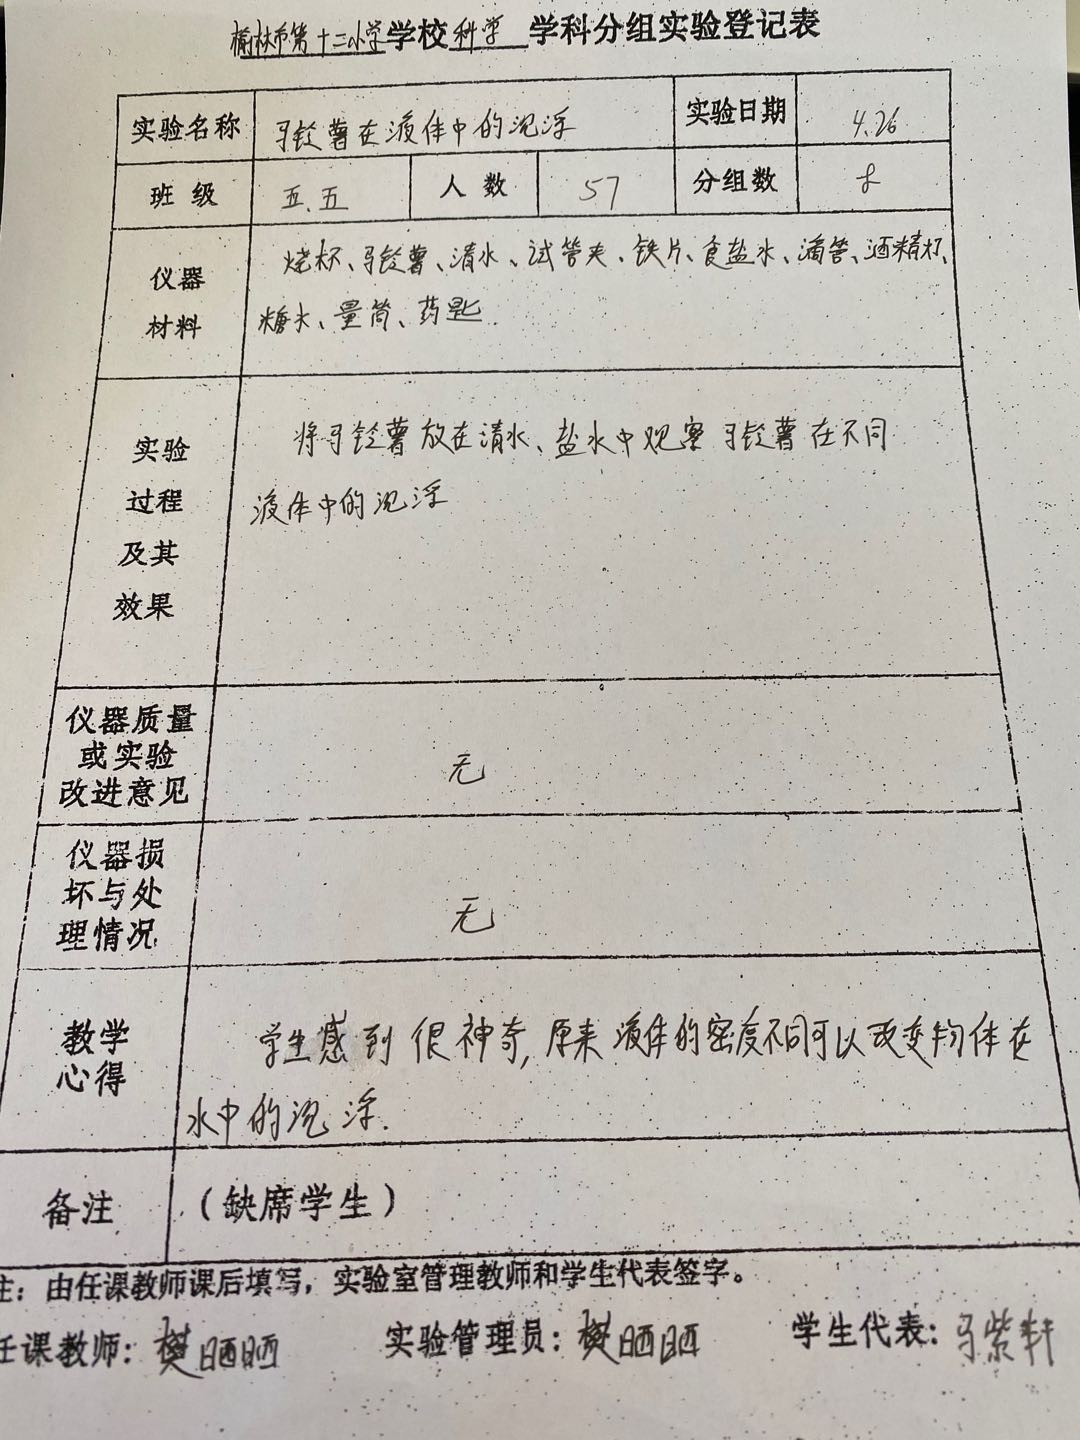 榆林市第十二小学学校科学 学科分组实验登记表
实验名称 马铃薯在液体中的沉浮 实验日期 4.26
班级 五.五 人数 57 分组数
仪器材料 烧杯、马铃薯、清水、试管夹、铁片、食盐水、滴管、酒精杯、
糖水、量筒、药匙.
实验过程及其效果 将马铃薯放在清水、盐水中观察马铃薯在不同
液体中的沉浮
仪器质量或实验改进意见 无
仪器损坏与处理情况 无
教学心得 学生感到很神奇,原来液体的密度不同可以改变物体在
水中的沉浮.
备注 （缺席学生）
注：由任课教师课后填写，实验室管理教师和学生代表签字。
任课教师：樊晒晒 实验管理员：樊晒晒 学生代表：马紫轩